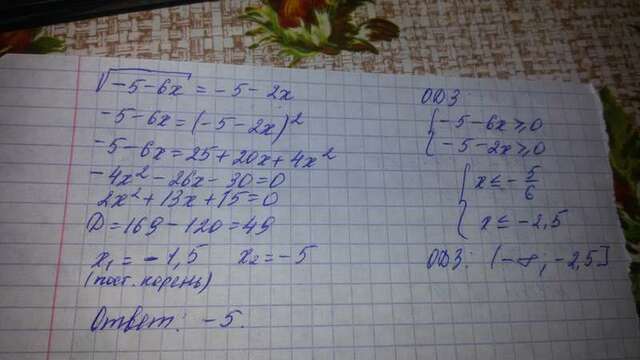 √-5-6x = -5-2x
-5-6x = (-5-2x)²
-5-6x = 25+20x+4x²
-4x²-26x-30=0
2x²+13x+15=0
D=169-120=49
x₁=-1,5 x₂=-5
(пост. корень)
Ответ: -5.
ОДЗ:
{-5-6x≥0
{-5-2x≥0
{x≤-5/6
{x≤-2,5
ОДЗ: (-∞; -2,5]